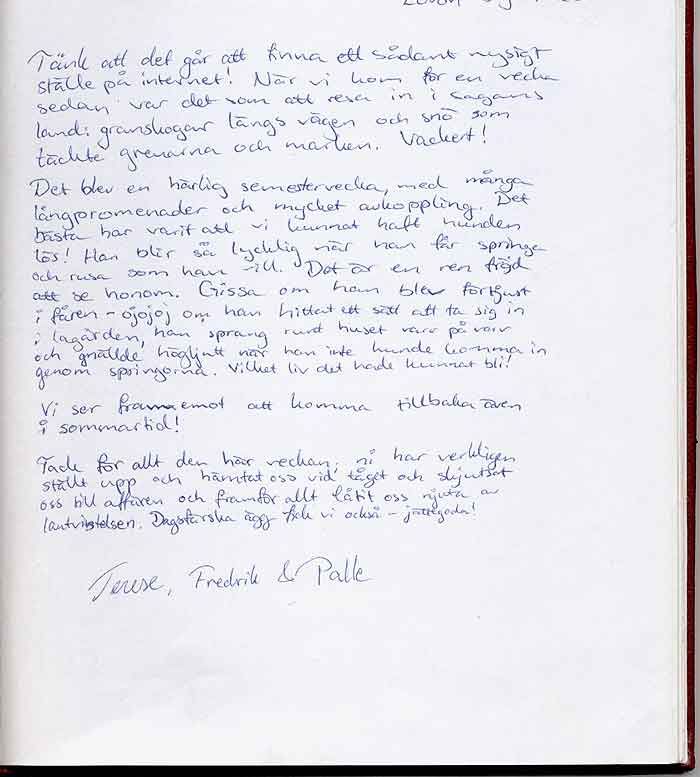 Tänk att det går att finna ett sådant mysigt
ställe på internet! När vi kom för en vecka
sedan var det som att resa in i sagans
land: granskogar längs vägen och snö som
täckte grenarna och marken. Vackert!
Det blev en härlig semestervecka, med många
långpromenader och mycket avkoppling. Det
bästa har varit att vi kunnat haft hunden
lös! Han blir så lycklig när han får springa
och rusa som han vill. Det är en ren fröjd
att se honom. Gissa om han blev förtjust
i fåren - ojojoj om han hittat ett sätt att ta sig in
i lagården, han sprang runt huset varv på varv
och gnällde högljutt när han inte kunde komma in
genom springorna. Vilket liv det hade kunnat bli!
Vi ser framemot att komma tillbaka även
i sommartid!
Tack för allt den här veckan, ni har verkligen
ställt upp och hämtat oss vid tåget och skjutsat
oss till affären och framför allt låtit oss njuta av
lantvistelsen. Dagsfärska ägg fick vi också - jättegoda!
Terese, Fredrik & Palle